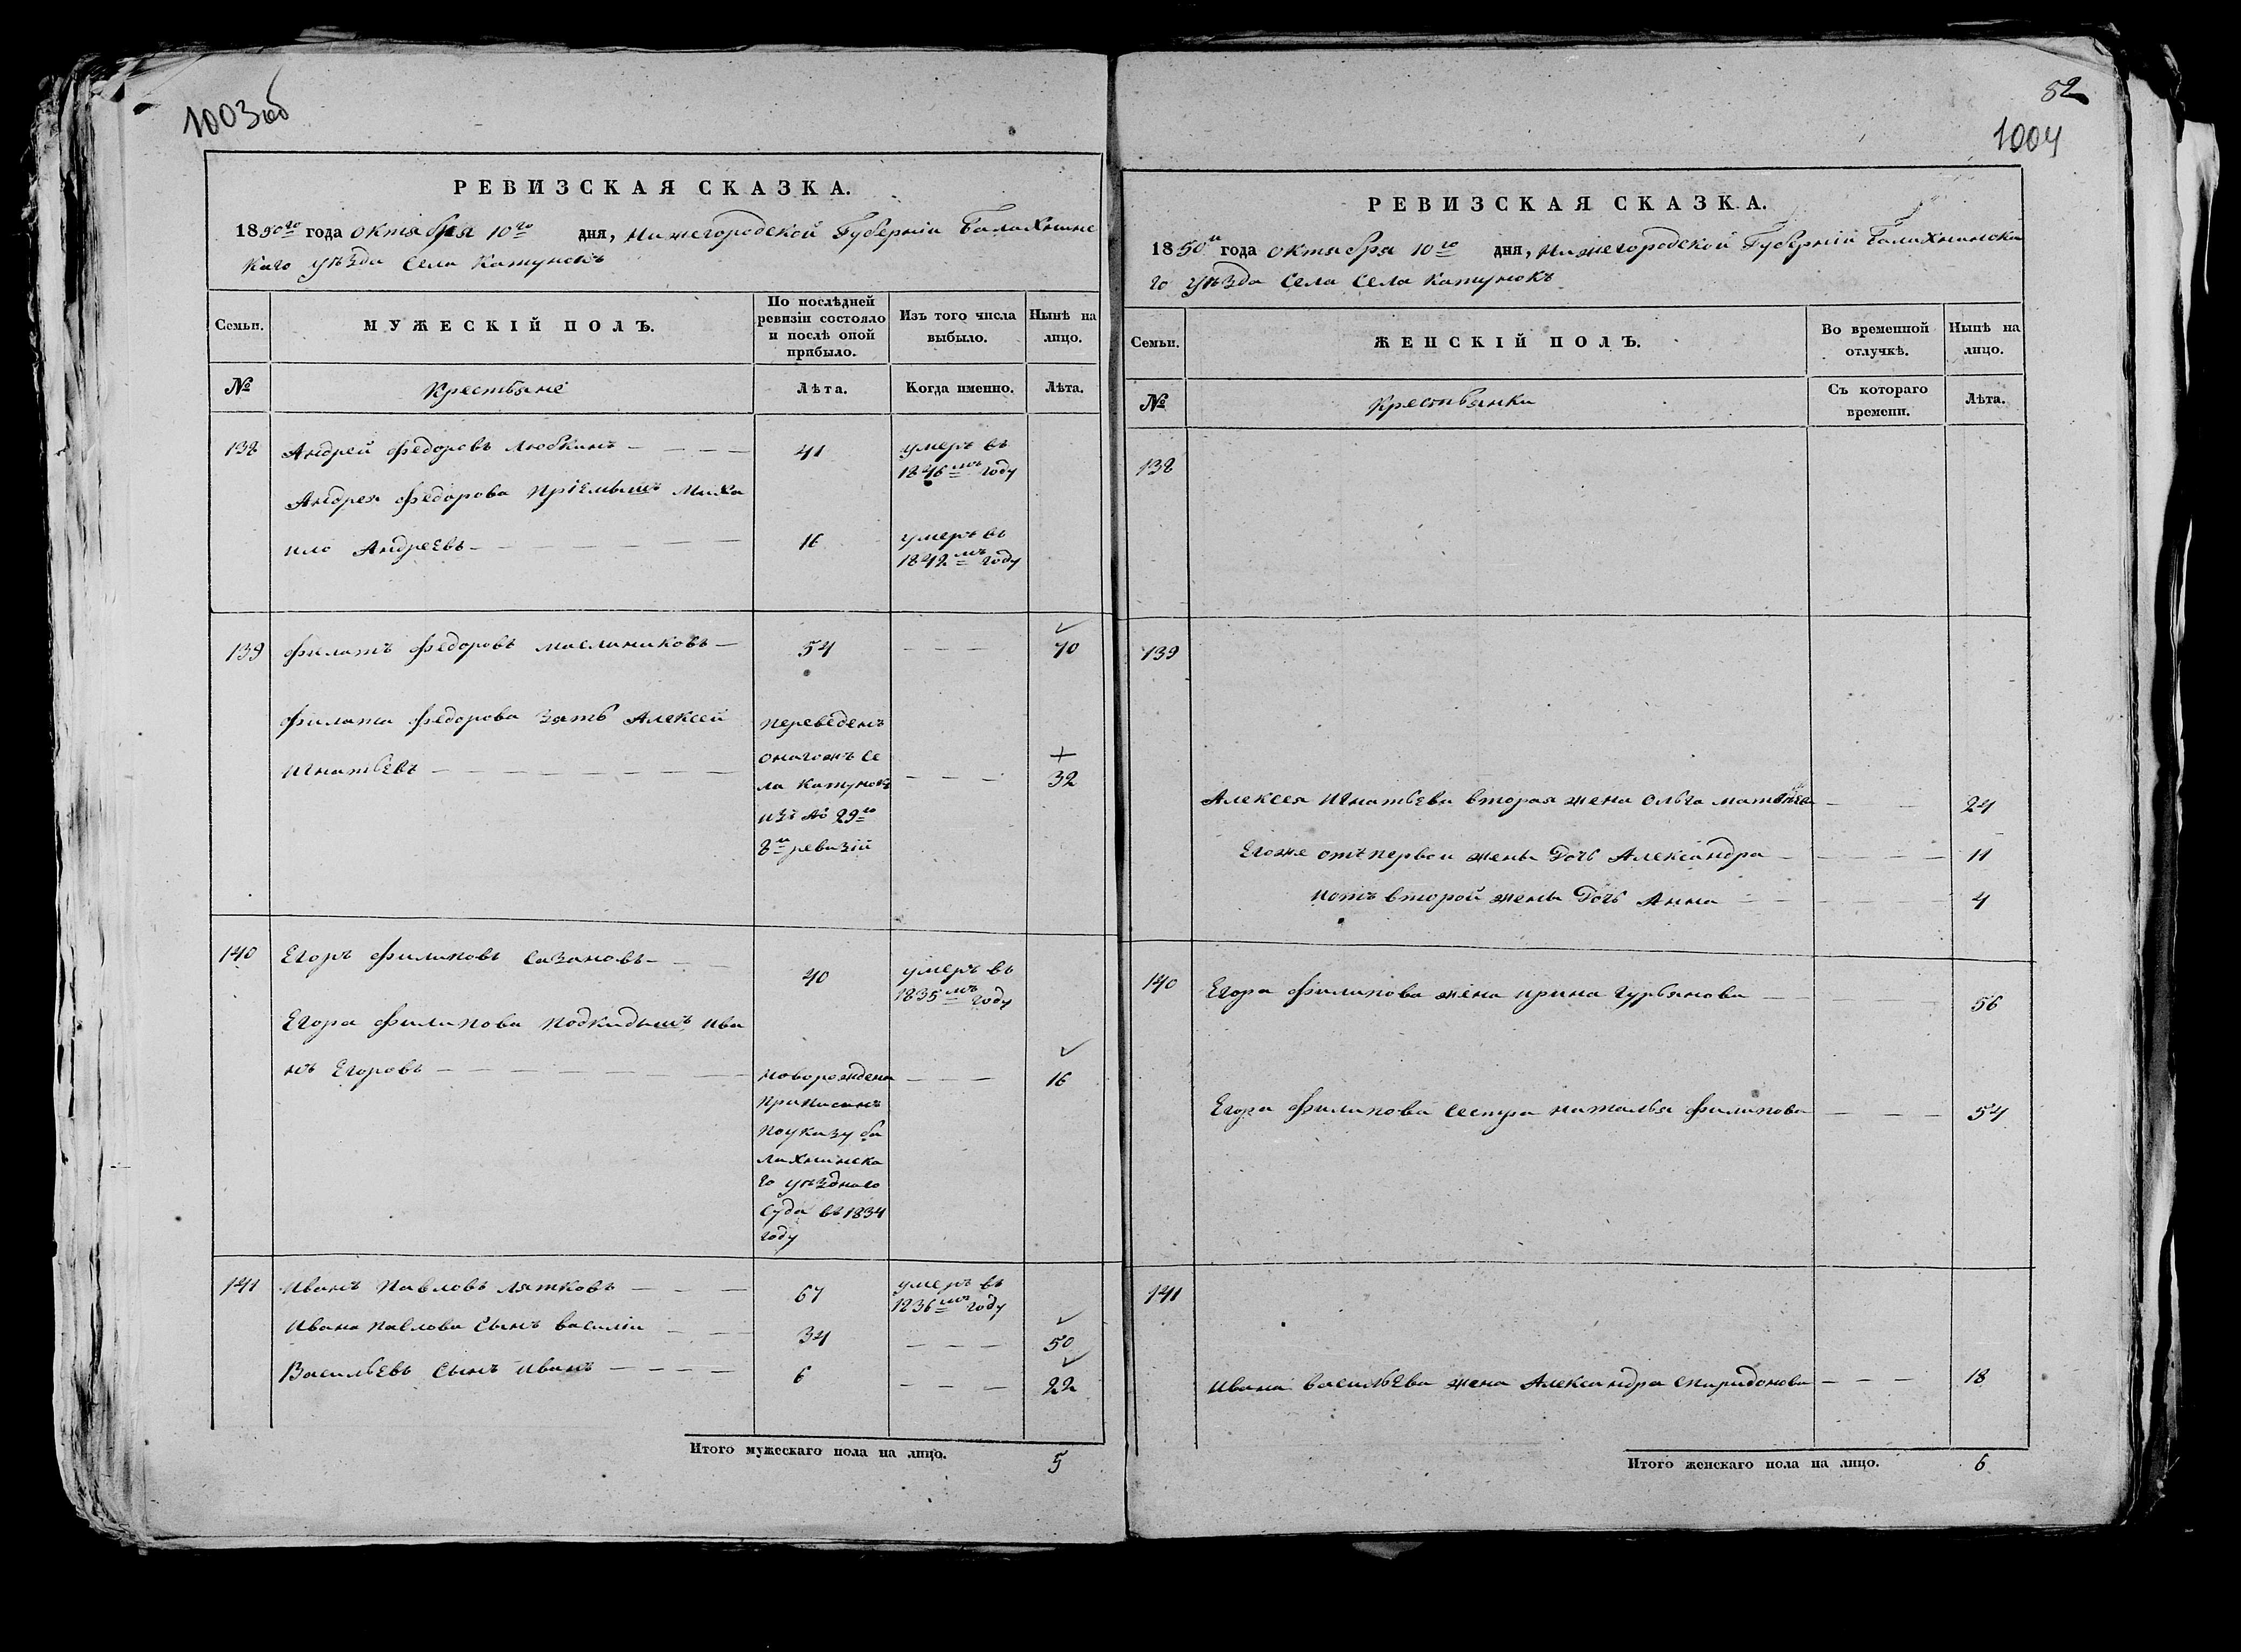 1003об
РЕВИЗСКАЯ СКАЗКА.
1850го года октября 10го дня, Нижегородской Губерніи Балахнинс
каго уѣзда Села Катунокъ
Семьи.
МУЖЕСКІЙ ПОЛЪ.
По послѣдней ревизіи состояло и послѣ оной прибыло.
Изъ того числа выбыло.
Нынѣ на лицо.
№
Крестьяне
Лѣта.
Когда именно.
Лѣта.
138 Андрей Федоровъ Любкинъ 41 умеръ въ
1846мъ году
Андрея Федорова Пріемышъ Миха
ило Андреевъ 16 умеръ въ
1842мъ году
139 Филатъ Федоровъ Маслениковъ 54 70
Филата Федорова зять Алексей
Игнатьевъ 32
переведенъ
оногожъ се
ла Катунокъ
изъ № 29го
8й ревизій
140 Егоръ Филиповъ Сазановъ 40 умеръ въ
1835мъ году
Егора Филипова подкидышъ Ива
нъ Егоровъ 16
новорожденъ
приписанъ
по указу ба
лахнинска
го уѣзднаго
суда въ 1834
году
141 Иванъ Павловъ Лятковъ 67 умеръ въ
1836мъ году
Ивана Павлова сынъ Василіи 34 50
Васильевъ сынъ Иванъ 6 22
Итого мужескаго пола на лицо. 5
52
1004
РЕВИЗСКАЯ СКАЗКА.
1850го года октября 10го дня, Нижегородской Губерній Балахнинска
го уѣзда Села Села Катунокъ
Семьи.
ЖЕНСКІЙ ПОЛЪ.
Во временной отлучкѣ.
Нынѣ на лицо.
№
Крестьянки
Съ котораго времени.
Лѣта.
138
139
Алексея Игнатьева вторая жена Ольга Матвѣева 24
Егоже отъ первой жены дочь Александра 11
и отъ второй жены дочь Анна 4
140 Егора Филипова жена Ирина Гурьянова 56
Егора Филипова сестра Наталья Филипова 54
141
Ивана Васильева жена Александра Спиридонова 18
Итого женскаго пола на лицо. 6